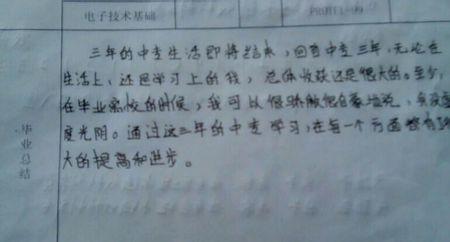 电子技术基础
三年的中专生活即将结束,回首中专三年,无论在
生活上、还是学习上的我,总体收获还是很大的。至少,
在毕业离校的时候,我可以很骄傲很自豪地说,我没虚
度光阴。通过这三年的中专学习,在每一个方面都有
大的提高和进步。
毕业总结